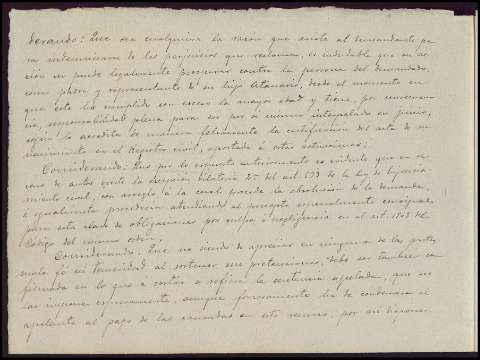 derando: Que sea cualquiera la razón que asista al demandante pa
ra indemnizarse de los perjuicios que reclama, es indudable que su ac
ción no puede legalmente prosperar contra la persona del demandado,
como padre y representante de su hijo Atanasio, desde el momento en
que este ha cumplido con exceso la mayor edad y tiene, por consecuen
cia, responsabilidad plena para ser por si mismo interpelado en juicio,
según lo acredita de manera fehaciente la certificación del acta de su
nacimiento en el Registro civil, aportada á estas actuaciones;
Considerando: Que por lo expuesto anteriormente es evidente que en el
caso de autos existe la excepción dilatoria 2ª del art. 533 de la Ley de Enjuicia
miento civil, con arreglo á la cual procede la absolución de la demanda,
é igualmente procedería atendiendo al precepto especialmente consignado
para esta clase de obligaciones por culpa ó negligencia en el art. 1903 del
Código del mismo orden;
Considerando: Que no siendo de apreciar en ninguna de las partes
mala fé ni temeridad al sostener sus pretensiones, debe ser también con
firmada en lo que a costas se refiere la sentencia apelada, que no
las impone expresamente, aunque forzosamente ha de condenarse al
apelante al pago de las causadas en este recurso, por así disponer